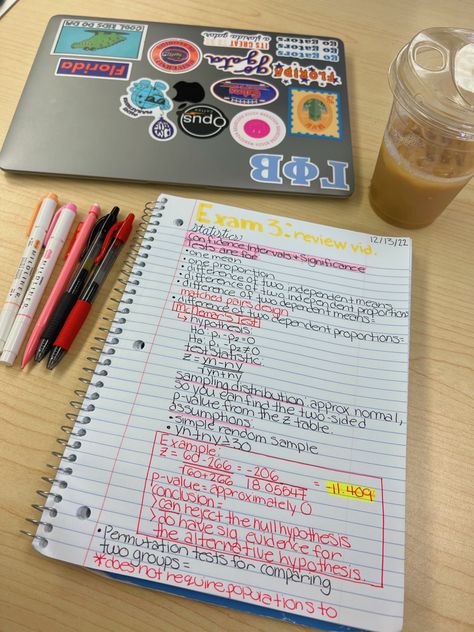 COOL KIDS DO DM
Florida
IT'S GREAT
a florida gator
GO GATORS
GO GATORS
GO GATORS
go gata
FLORIDA
Opus
ΓΦΒ
Exam 3: review vid.
12/13/22
statistics:
Confidence Intervals + Significance
Tests are for
• one mean
• one proportion
• difference of two independent means
• difference of two independent proportions
• difference of two dependent means =
matched pairs design
• difference of two dependent proportions=
McNemar's Test
↳ hypothesis:
H0: p1-p2=0
Ha: p1-p2≠0
test statistic:
z= yn-ny
√yn+ny
sampling distribution: approx normal,
so you can find the two-sided
p-value from the z table.
assumptions:
• simple random sample
• yn+ny≥30
Example:
z= 60-266 = -206 = -11.409
√60+266 18.05547
p-value= approximately 0
conclusion =
> can reject the null hypothesis
> do have sig. evidence for
the alternative hypothesis.
• Permutation tests for comparing
two groups=
*does not require populations to